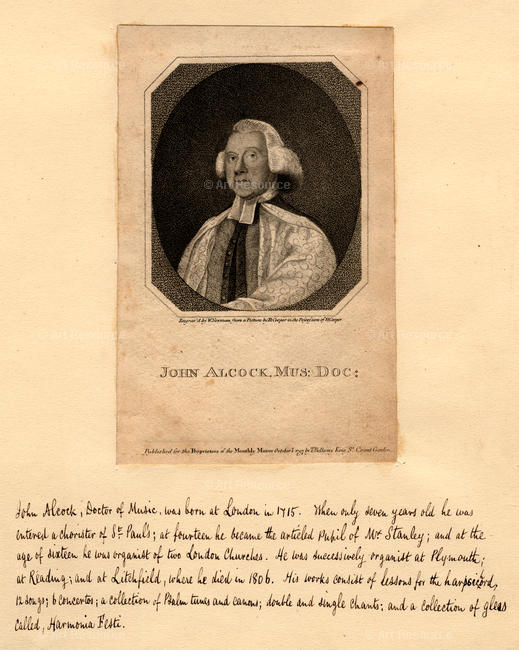 Engrav'd by W. Newman, from a Picture by R. Cooper in the Possession of M. Cooper
JOHN ALCOCK, MUS: DOC:
Published for the Proprietors of the Monthly Mirror October 1 1797 by T. Bellamy King St. Covent Garden.
John Alcock, Doctor of Music, was born at London in 1715. When only seven years old he was
entered a chorister of St. Paul's; at fourteen he became the articled pupil of Mr Stanley; and at the
age of sixteen he was organist of two London Churches. He was successively organist at Plymouth;
at Reading; and at Litchfield, where he died in 1806. His works consist of lessons for the harpsicord,
12 songs; 6 concertos; a collection of Psalm tunes and canons; double and single chants; and a collection of glees
called, Harmonia Festi.
© Art Resource